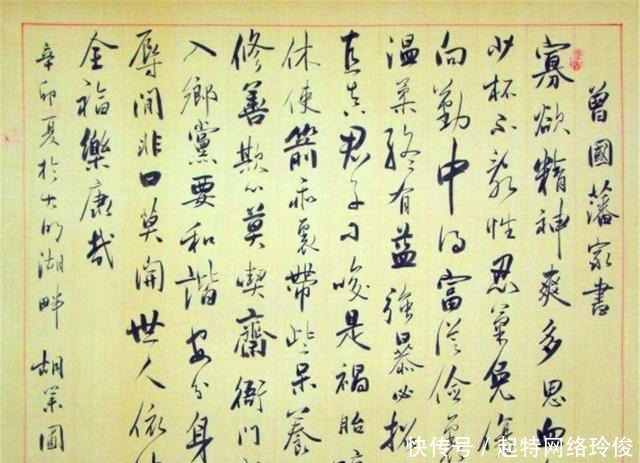 曾國藩家書
寡欲精神爽多思血
少杯不亂性忍氣免傷
向勤中得富從儉
溫柔終有益強暴必招
直真君子刁唆是禍胎暗
休使箭乖裏帶些呆養
修善欺心莫喫齋衙門
入鄉黨要和諧安分身
辱閒非口莫開世人依
全福樂康哉
辛卯夏於大明湖畔
胡業國
快传号/起特网络玲俊